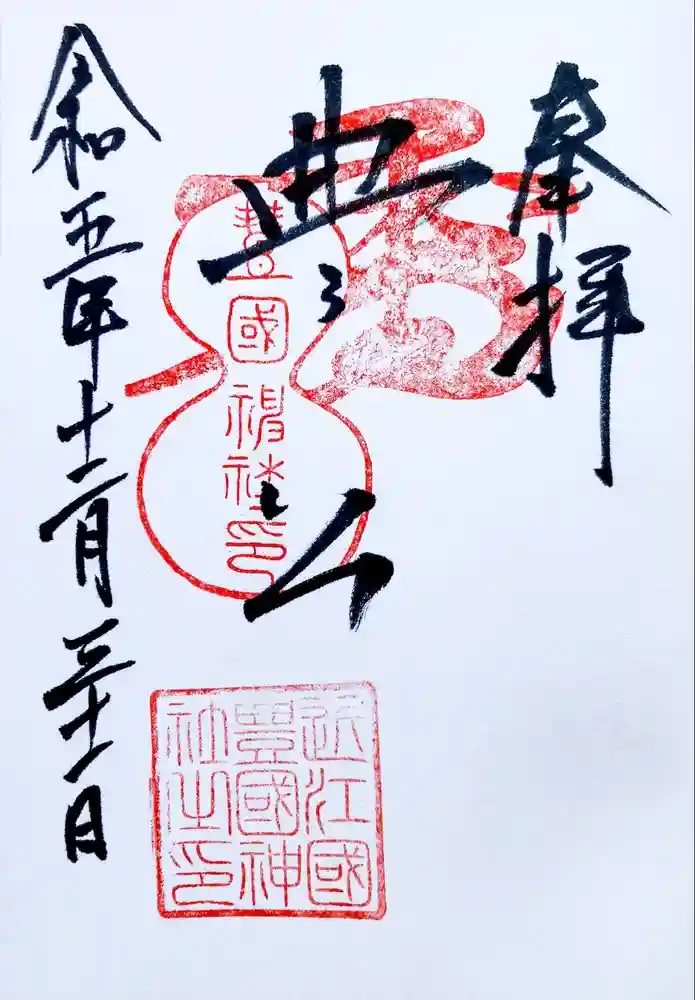 奉拝
豐國神社印
近江國
豐國神
社之印
令和五年十二月三十一日